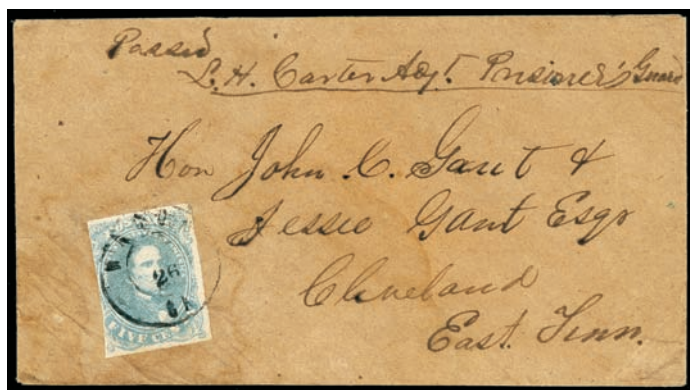 Passed
L. H. Carter Adjt. Prisoner's Guard
Hon John C. Gaut &
Jessie Gaut Esqr
Cleveland
East. Tenn.
26
GA
FIVE CENTS